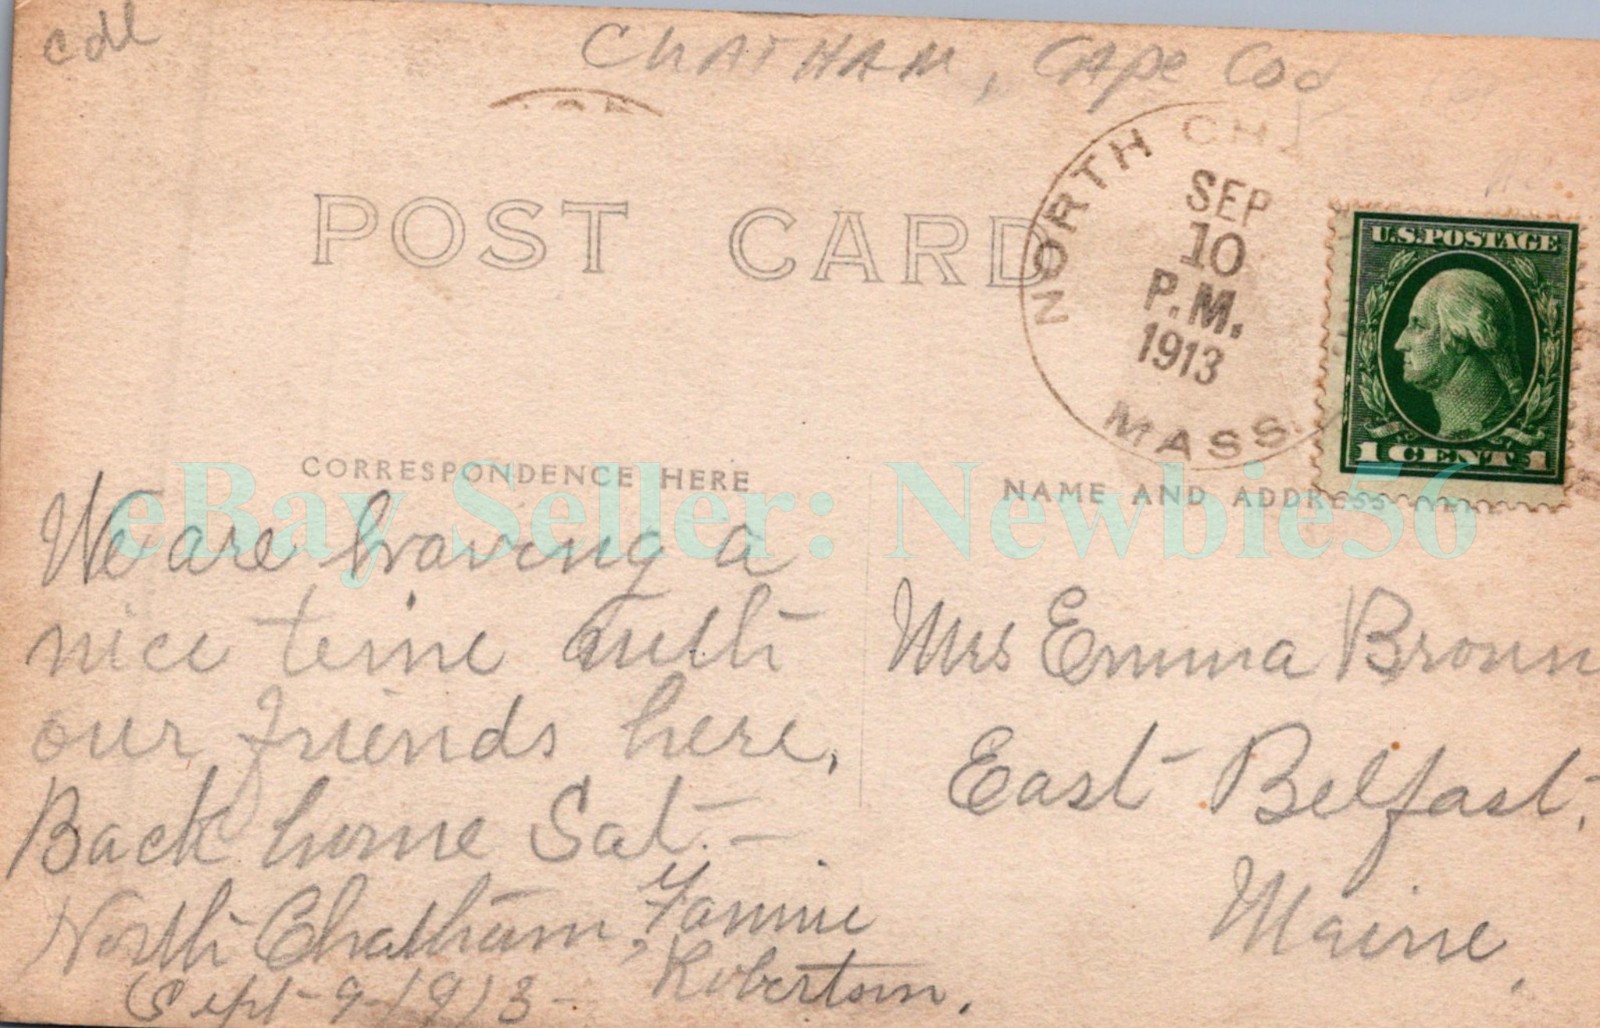 cdl
CHATHAM, CAPE COD
POST CARD
NORTH CH
SEP
10
P.M.
1913
MASS
U.S. POSTAGE
1 CENT 1
CORRESPONDENCE HERE
NAME AND ADDRESS
eBay Seller: Newbie56
We are having a
nice time with
our friends here,
Back home Sat. -
North Chatham, Fannie
Sept - 9 - 1913 - Robertson.
Mrs Emma Brown
East Belfast,
Maine.